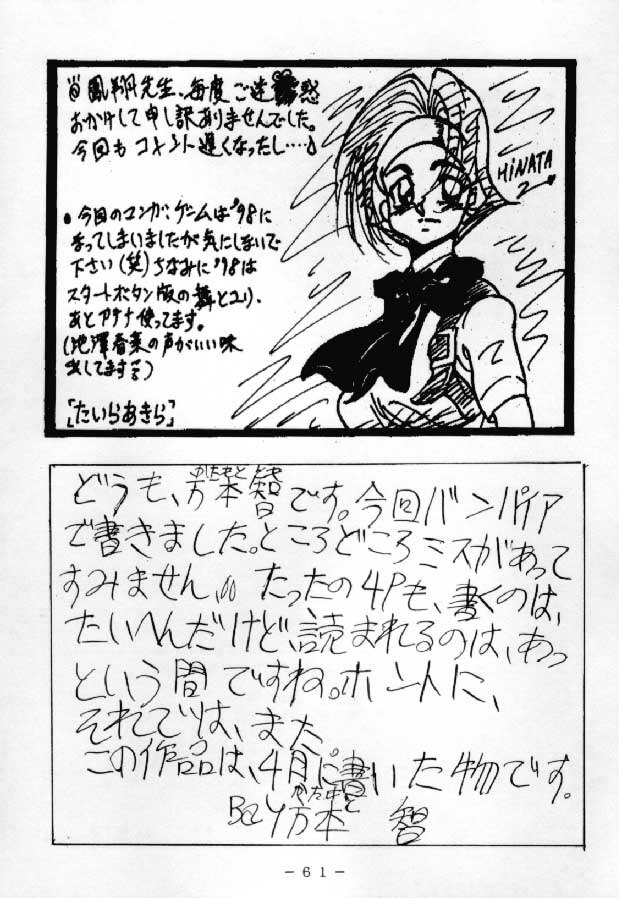 鳳翔先生、毎度ご迷惑
おかけして申し訳ありませんでした。
今回もコメント遅くなったし‥‥♪
HiNATA
2
●今回のマンガ、ゲームは'98に
なってしまいましたが気にしないで
下さい(笑)ちなみに'98は
スタートボタン版の舞とユリ、
あとアテナ使ってます。
(池澤春菜の声がいい味
出してます)
「たいらあきら」
かたもと とも
どうも、方本智です。今回バンパイア
で書きました。ところどころミスがあって
すみません。たったの4Pも、書くのは、
たいへんだけど、読まれるのは、あっ
という間ですね。ホントに、
それでは、また
この作品は、4月に書いた物です。
かたもと
By 方本 智
－61－